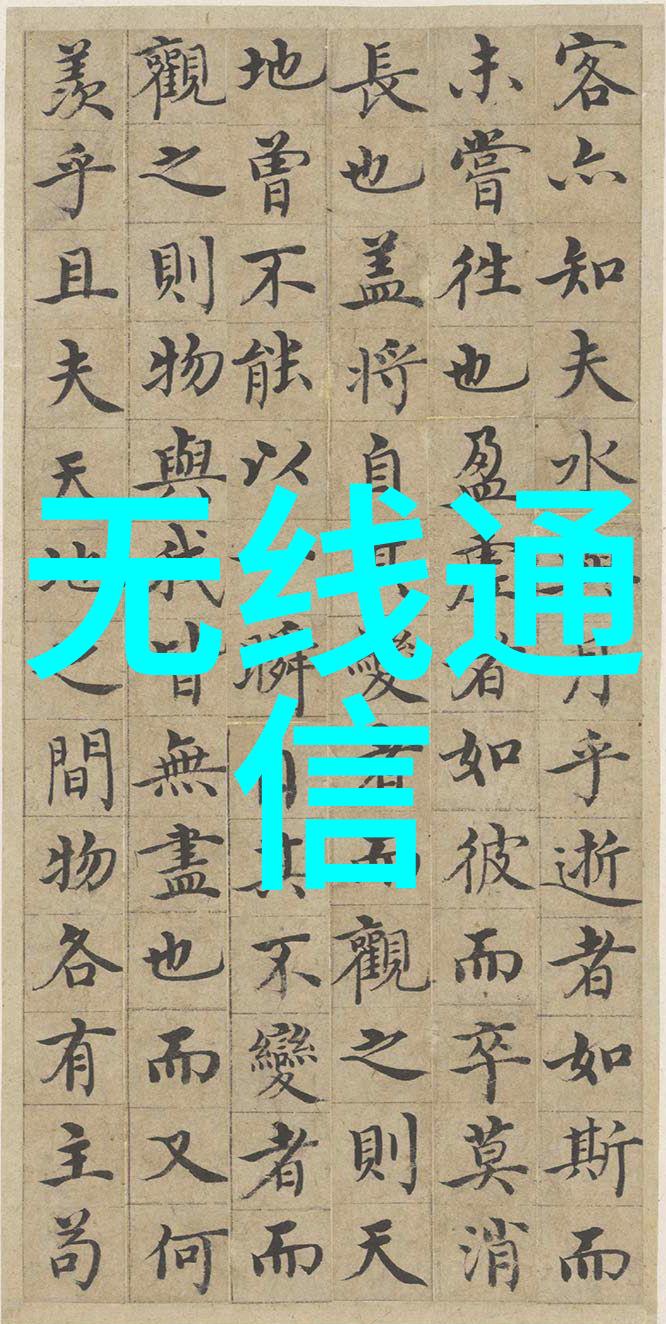 客亦知夫水月乎逝者如斯而
未嘗徃也盈虛者如彼而卒莫消
長也盖將自其變者而觀之則天
地曾不能以瞬自其不變者而
觀之則物與我皆無盡也而又何
羨乎且夫天地之間物各有主苟
无线通
信